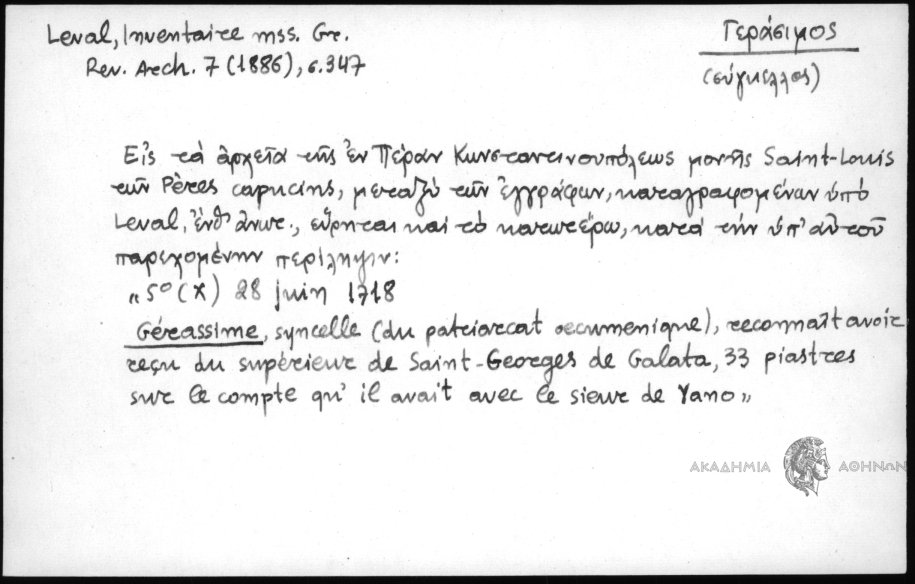 Leval, Inventaire mss. Gr.
Rev. Arch. 7 (1886), σ.347
Γεράσιμος
(σύγκελλος)
Εἰς τὰ ἀρχεῖα τῆς ἐν Πέραν Κωνσταντινουπόλεως μονῆς Saint-Louis
τῶν Pères capucins, μεταξὺ τῶν ἐγγράφων, καταγραφομένων ὑπὸ
Leval, ἔνθ' ἀνωτ., εὕρηται καὶ τὸ κατωτέρω, κατὰ τὴν ὑπ' αὐτοῦ
παρεχομένην περίληψιν:
„5° (X) 28 juin 1718
Gérassime, syncelle (du patriarcat œcumenique), reconnaît avoir
reçu du supérieur de Saint-Georges de Galata, 33 piastres
sur le compte qu' il avait avec le sieur de Yano„
ΑΚΑΔΗΜΙΑ ΑΘΗΝΩΝ